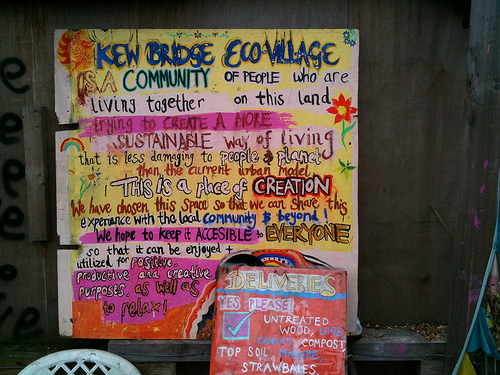 KEW BRIDGE ECO-VILLAGE
IS A COMMUNITY OF PEOPLE who are
living together on this land
trying to CREATE A MORE
SUSTAINABLE way of living
that is less damaging to people & planet
than the current urban model
THIS IS A place of CREATION
We have chosen this space so that we can share this
experience with the local community & beyond!
We hope to keep it ACCESIBLE to EVERYONE
so that it can be enjoyed +
utilized for positive,
productive and creative
purposes, as well as
to relax!
DELIVERIES
YES PLEASE!
UNTREATED
WOOD, LOGS
CANVAS, COMPOST,
TOP SOIL, MANURE
STRAWBALES,